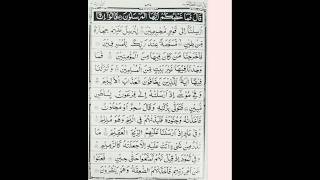 قَالَ فَمَا خَطْبُكُمْ اَيُّهَا الْمُرْسَلُوْنَ قَالُوْٓا اِنَّآ
اَرْسِلْنَآ اِلٰى قَوْمٍ مُّجْرِمِيْنَ لِنُرْسِلَ عَلَيْهِمْ حِجَارَةً
مِّنْ طِيْنٍ مُّسَوَّمَةً عِنْدَ رَبِّكَ لِلْمُسْرِفِيْنَ
فَاَخْرَجْنَا مَنْ كَانَ فِيْهَا مِنَ الْمُؤْمِنِيْنَ فَمَا
وَجَدْنَا فِيْهَا غَيْرَ بَيْتٍ مِّنَ الْمُسْلِمِيْنَ
وَتَرَكْنَا فِيْهَآ اٰيَةً لِّلَّذِيْنَ يَخَافُوْنَ الْعَذَابَ الْاَلِيْمَ
وَفِيْ مُوْسٰٓى اِذْ اَرْسَلْنٰهُ اِلٰى فِرْعَوْنَ بِسُلْطٰنٍ
مُّبِيْنٍ فَتَوَلّٰى بِرُكْنِهٖ وَقَالَ سٰحِرٌ اَوْ مَجْنُوْنٌ
فَاَخَذْنٰهُ وَجُنُوْدَهٗ فَنَبَذْنٰهُمْ فِي الْيَمِّ وَهُوَ مُلِيْمٌ
وَفِيْ عَادٍ اِذْ اَرْسَلْنَا عَلَيْهِمُ الرِّيْحَ الْعَقِيْمَ مَا
تَذَرُ مِنْ شَيْءٍ اَتَتْ عَلَيْهِ اِلَّا جَعَلَتْهُ كَالرَّمِيْمِ
وَفِيْ ثَمُوْدَ اِذْ قِيْلَ لَهُمْ تَمَتَّعُوْا حَتّٰى حِيْنٍ فَعَتَوْا
عَنْ اَمْرِ رَبِّهِمْ فَاَخَذَتْهُمُ الصّٰعِقَةُ وَهُمْ يَنْظُرُوْنَ